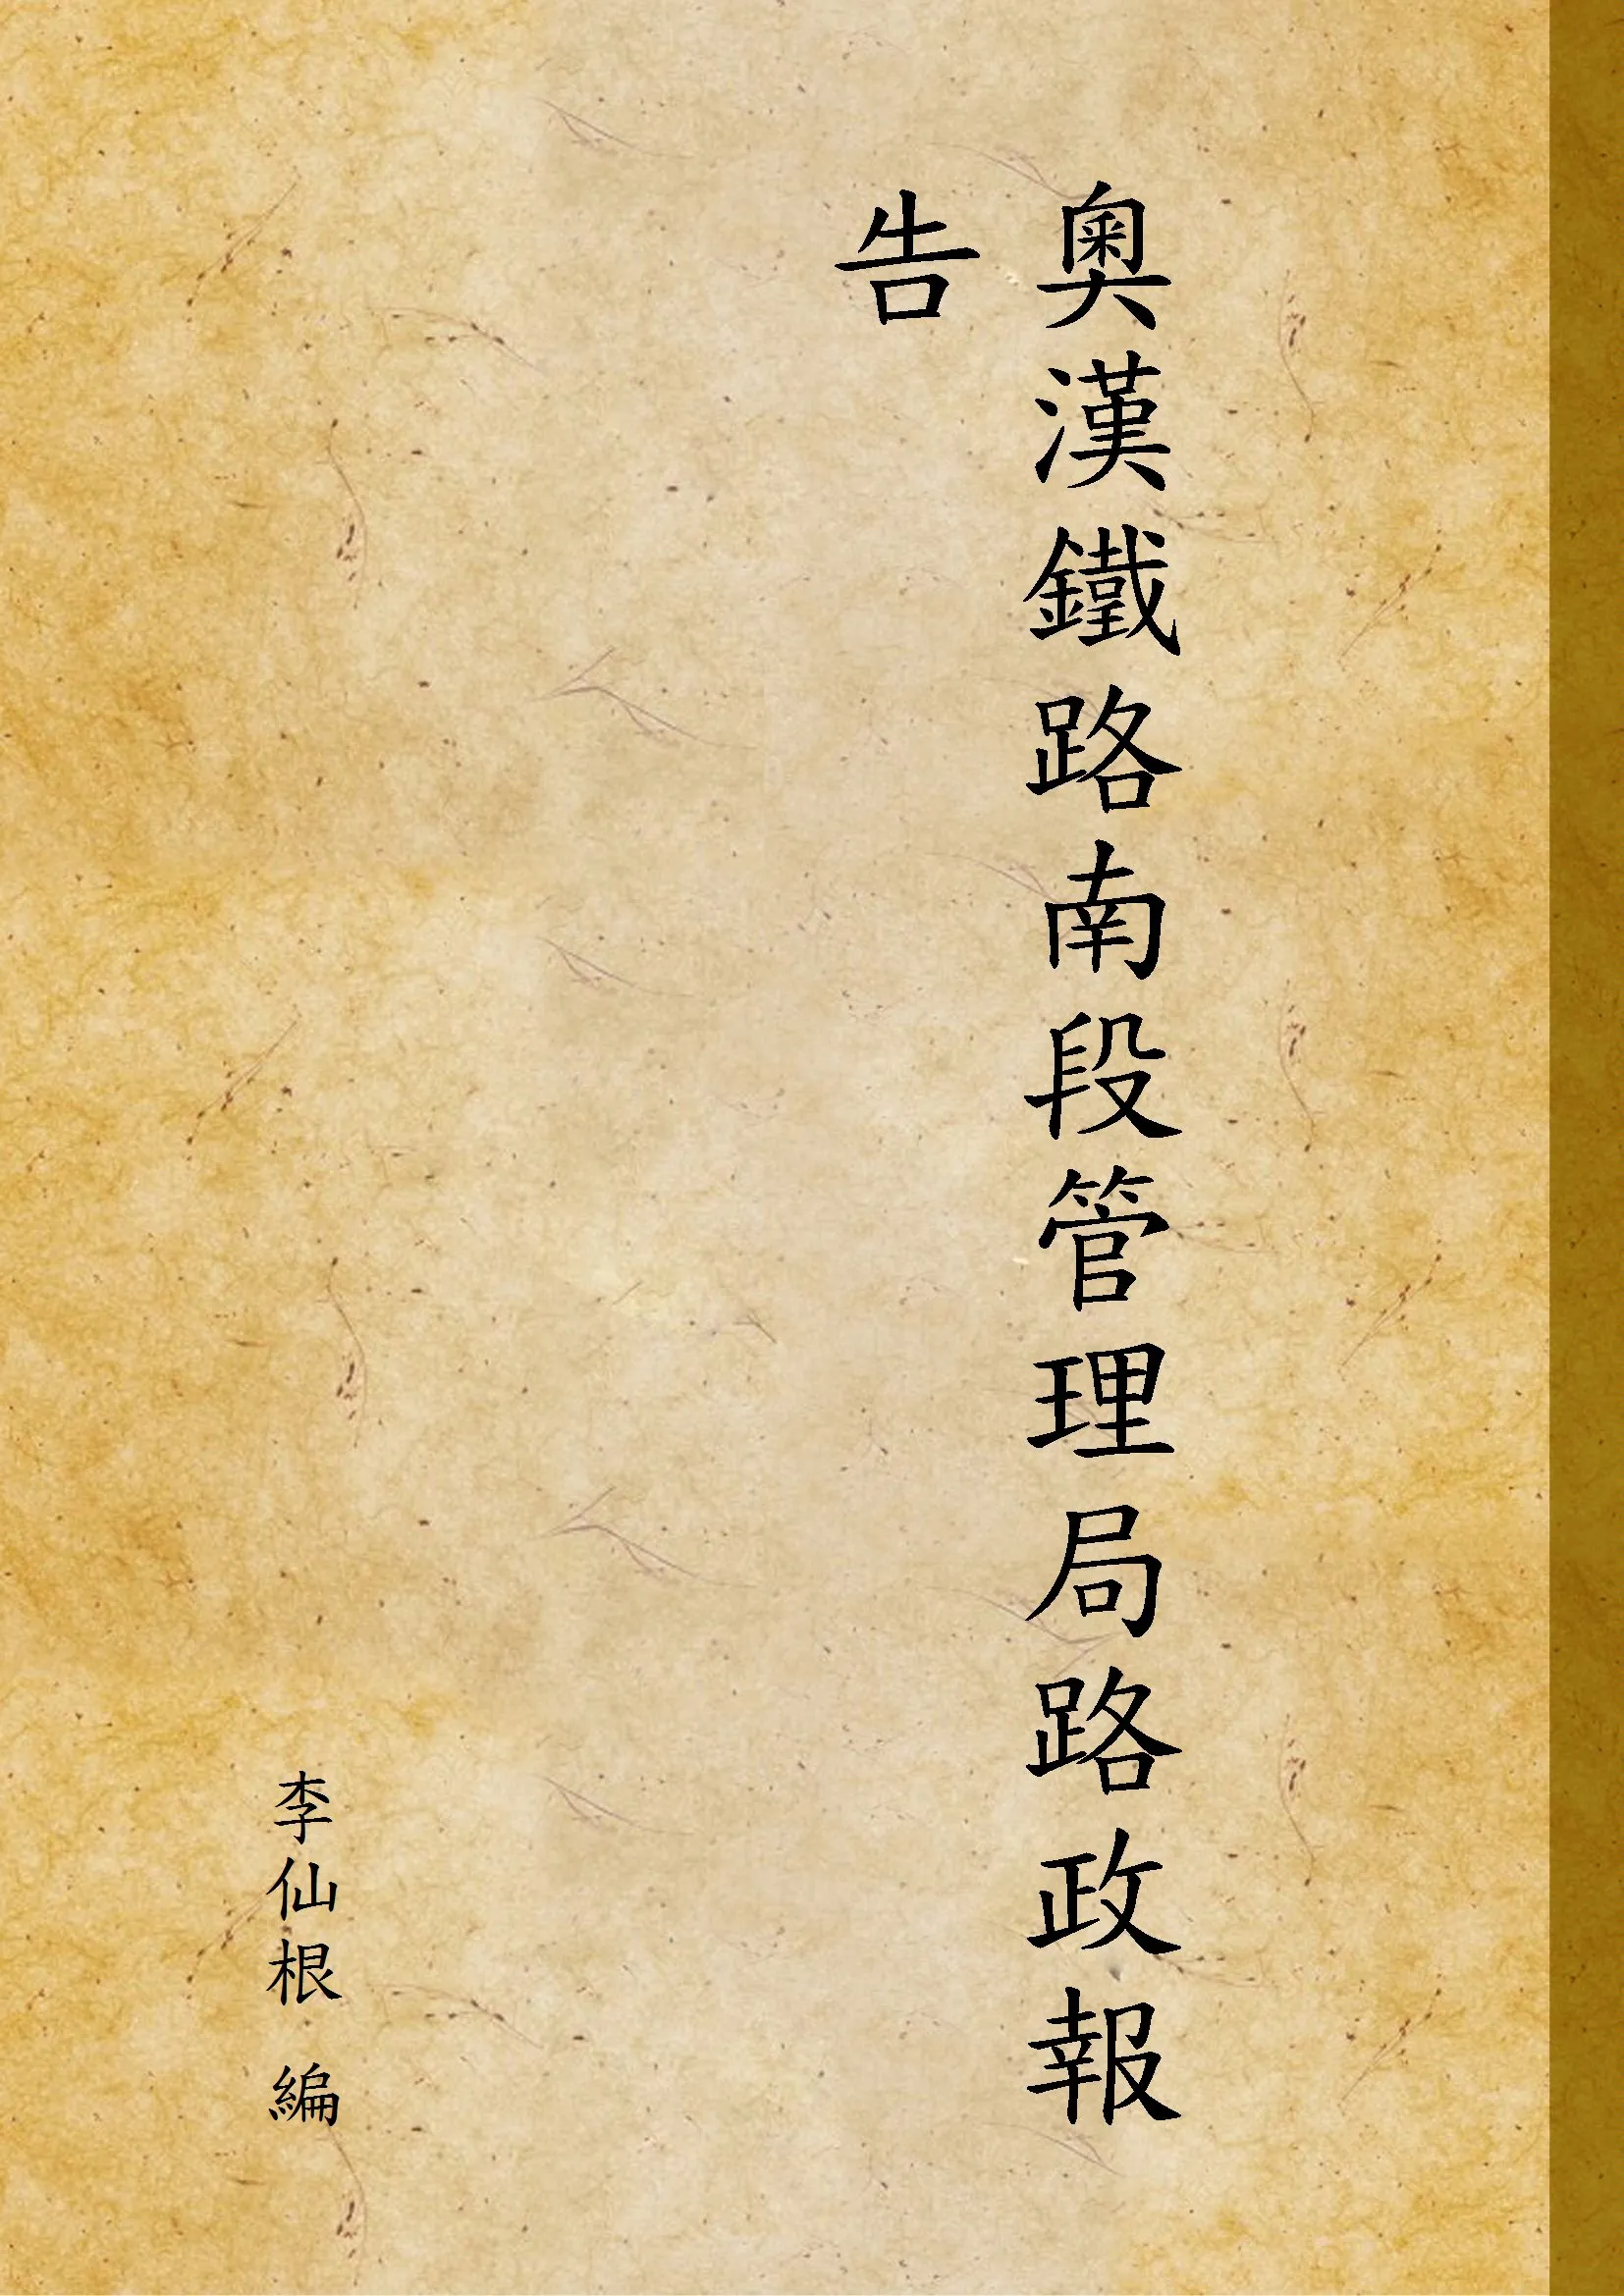 奧漢鐵路南段管理局路政報
告
李仙根 編